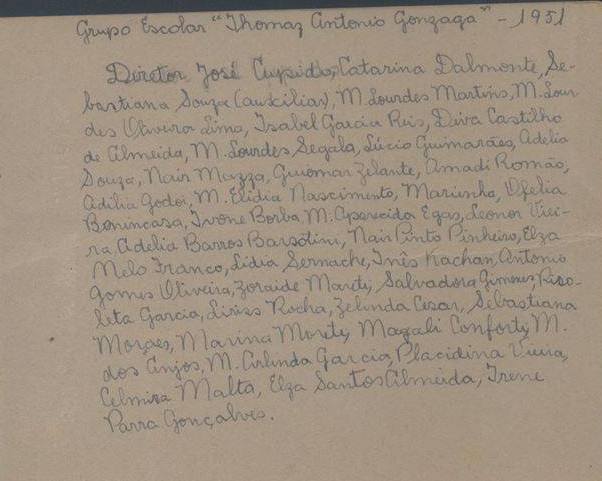 Grupo Escolar "Thomaz Antonio Gonzaga" - 1951
Diretor José Cupido, Catarina Dalmonte, Se-
bastiana Souza (auxiliar), M. Lourdes Martins, M. Lour-
des Oliveira Lima, Isabel Garcia Ruis, Diva Castilho
de Almeida, M. Lourdes Segala, Lúcio Guimarães, Adelia
Souza, Nair Mazza, Guiomar Zelante, Amadi Romão,
Adilia Godoi, M. Elidia Nascimento, Mariinha, Ofelia
Bonincasa, Ivone Borba, M. Aparecida Egas, Leonor Viei-
ra, Adelia Barros Barsotini, Nair Pinto Pinheiro, Elza
Melo Franco, Lidia Sernache, Inês Kachan, Antonio
Gomes Oliveira, Zoraide Morety, Salvadora Gimenez, Riso-
leta Garcia, Rocha, Zelinda Cesar, Sebastiana
Moraes, Marina Morety, Magali Conforty, M.
dos Anjos, M. Arlinda Garcia, Placidina Vieira,
Celmira Malta, Elza Santos Almeida, Irene
Parra Gonçalves.